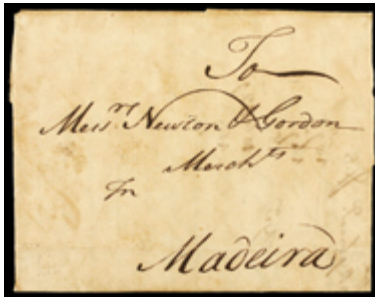 To
Messrs Newton & Gordon
Merchts
In
Madeira